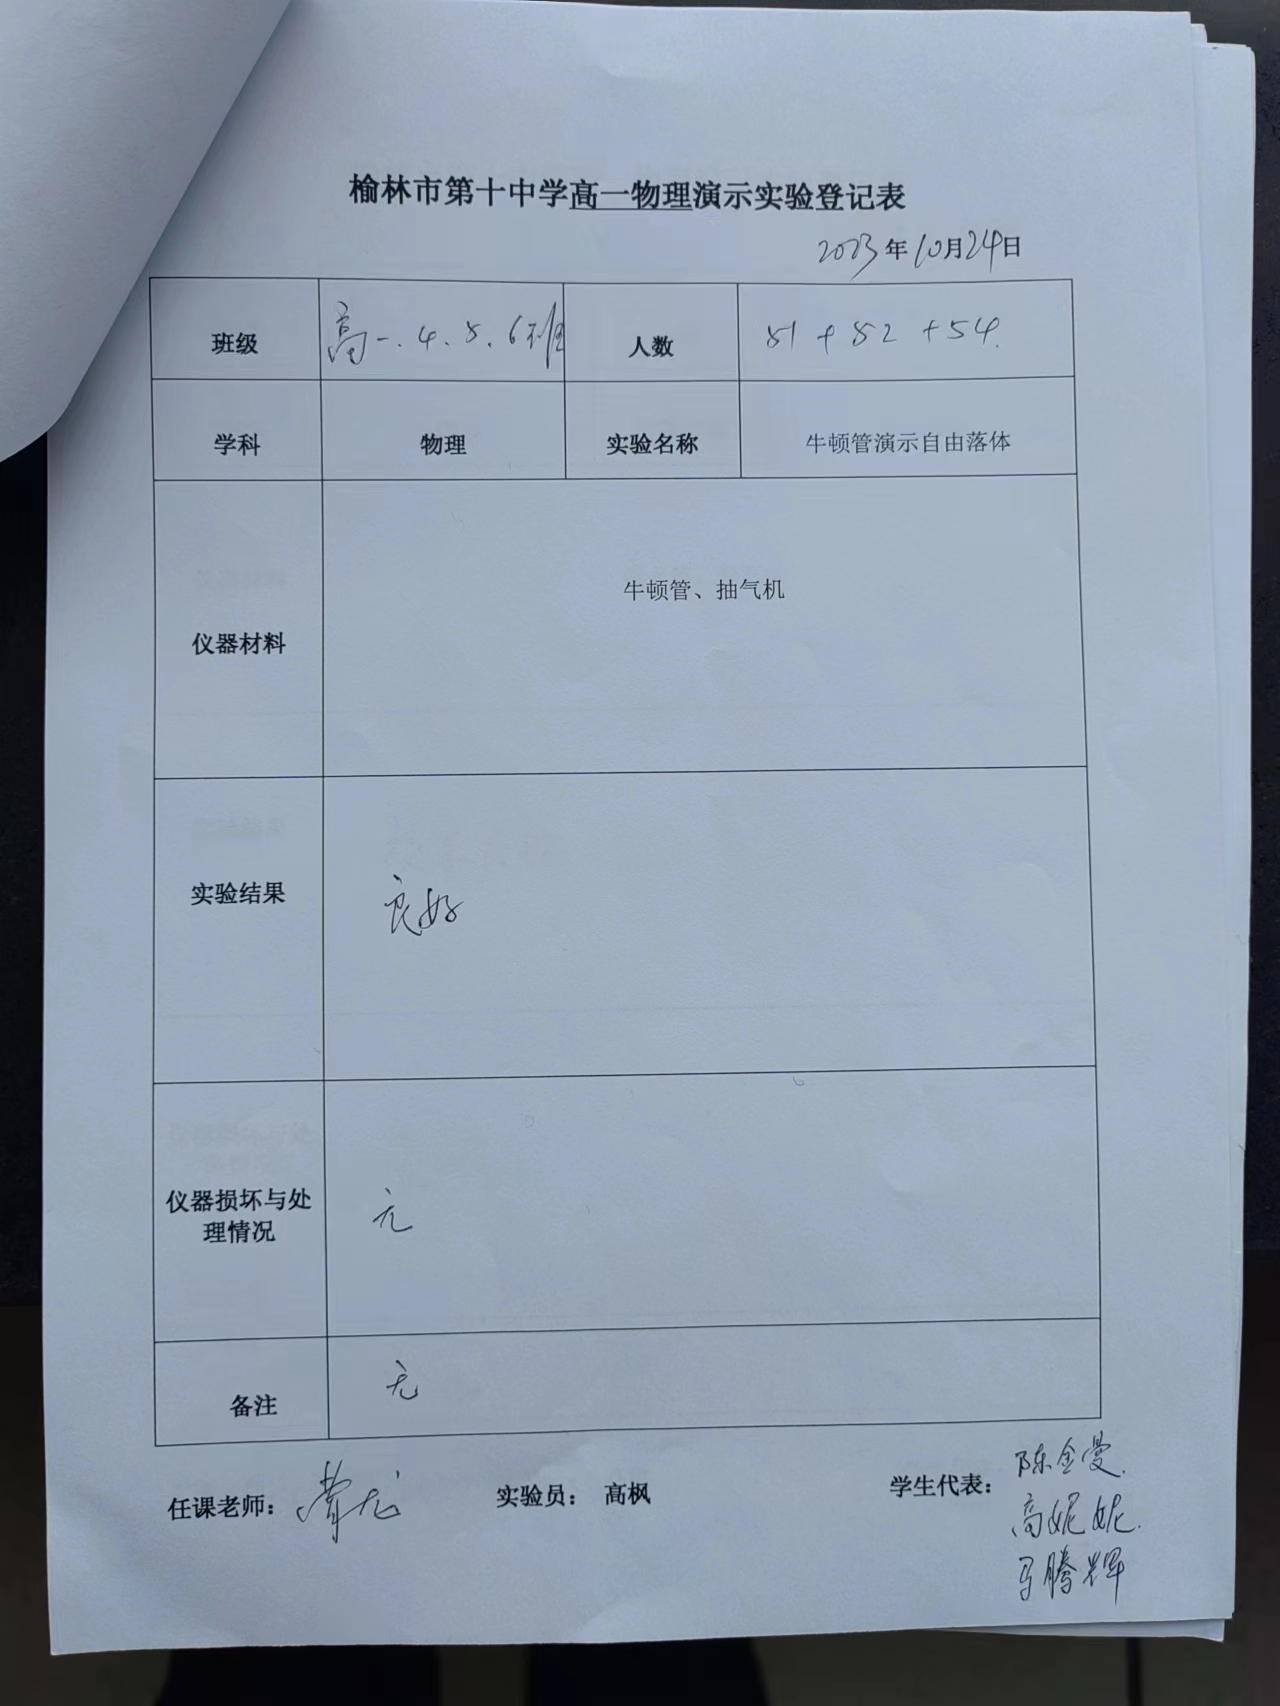 榆林市第十中学高一物理演示实验登记表
2023年10月24日
班级 高一.4、5、6班 人数 51+52+54.
学科 物理 实验名称 牛顿管演示自由落体
仪器材料 牛顿管、抽气机
实验结果 良好
仪器损坏与处
理情况 无
备注 无
任课老师： 实验员： 高枫 学生代表： 陈金曼.
高妮妮.
马腾辉